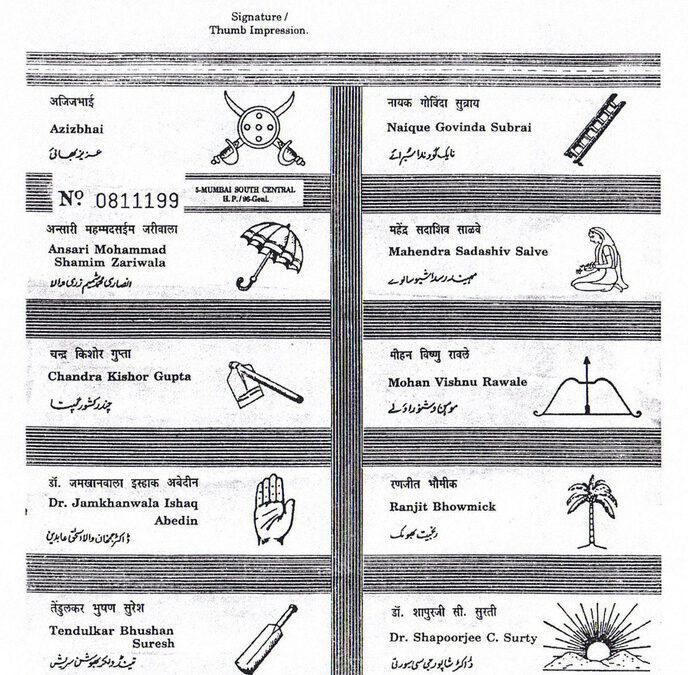 Signature /
Thumb Impression.
अजिजभाई
Azizbhai
عزیز بھائی
Nº 0811199
5-MUMBAI SOUTH CENTRAL
H. P. / 96-Genl.
अन्सारी महम्मदसईम जरीवाला
Ansari Mohammad
Shamim Zariwala
انصاری محمد شمیم زری والا
चन्द्र किशोर गुप्ता
Chandra Kishor Gupta
چندر کشور گپتا
डॉ. जमखानवाला इस्हाक अबेदीन
Dr. Jamkhanwala Ishaq
Abedin
ڈاکٹر جمخان والا اسحٰق عابدین
तेंडुलकर भुषण सुरेश
Tendulkar Bhushan
Suresh
تینڈولکر بھوشن سریش
नायक गोविंदा सुब्राय
Naique Govinda Subrai
نایک گووندا سبرائے
महेंद्र सदाशिव साळवे
Mahendra Sadashiv Salve
مہیندر سداشیو سالوے
मोहन विष्णु रावले
Mohan Vishnu Rawale
موہن وشنو راولے
रणजीत भौमीक
Ranjit Bhowmick
رنجیت بھومک
डॉ. शापुरजी सी. सुरती
Dr. Shapoorjee C. Surty
ڈاکٹر شاپورجی سی سورتی